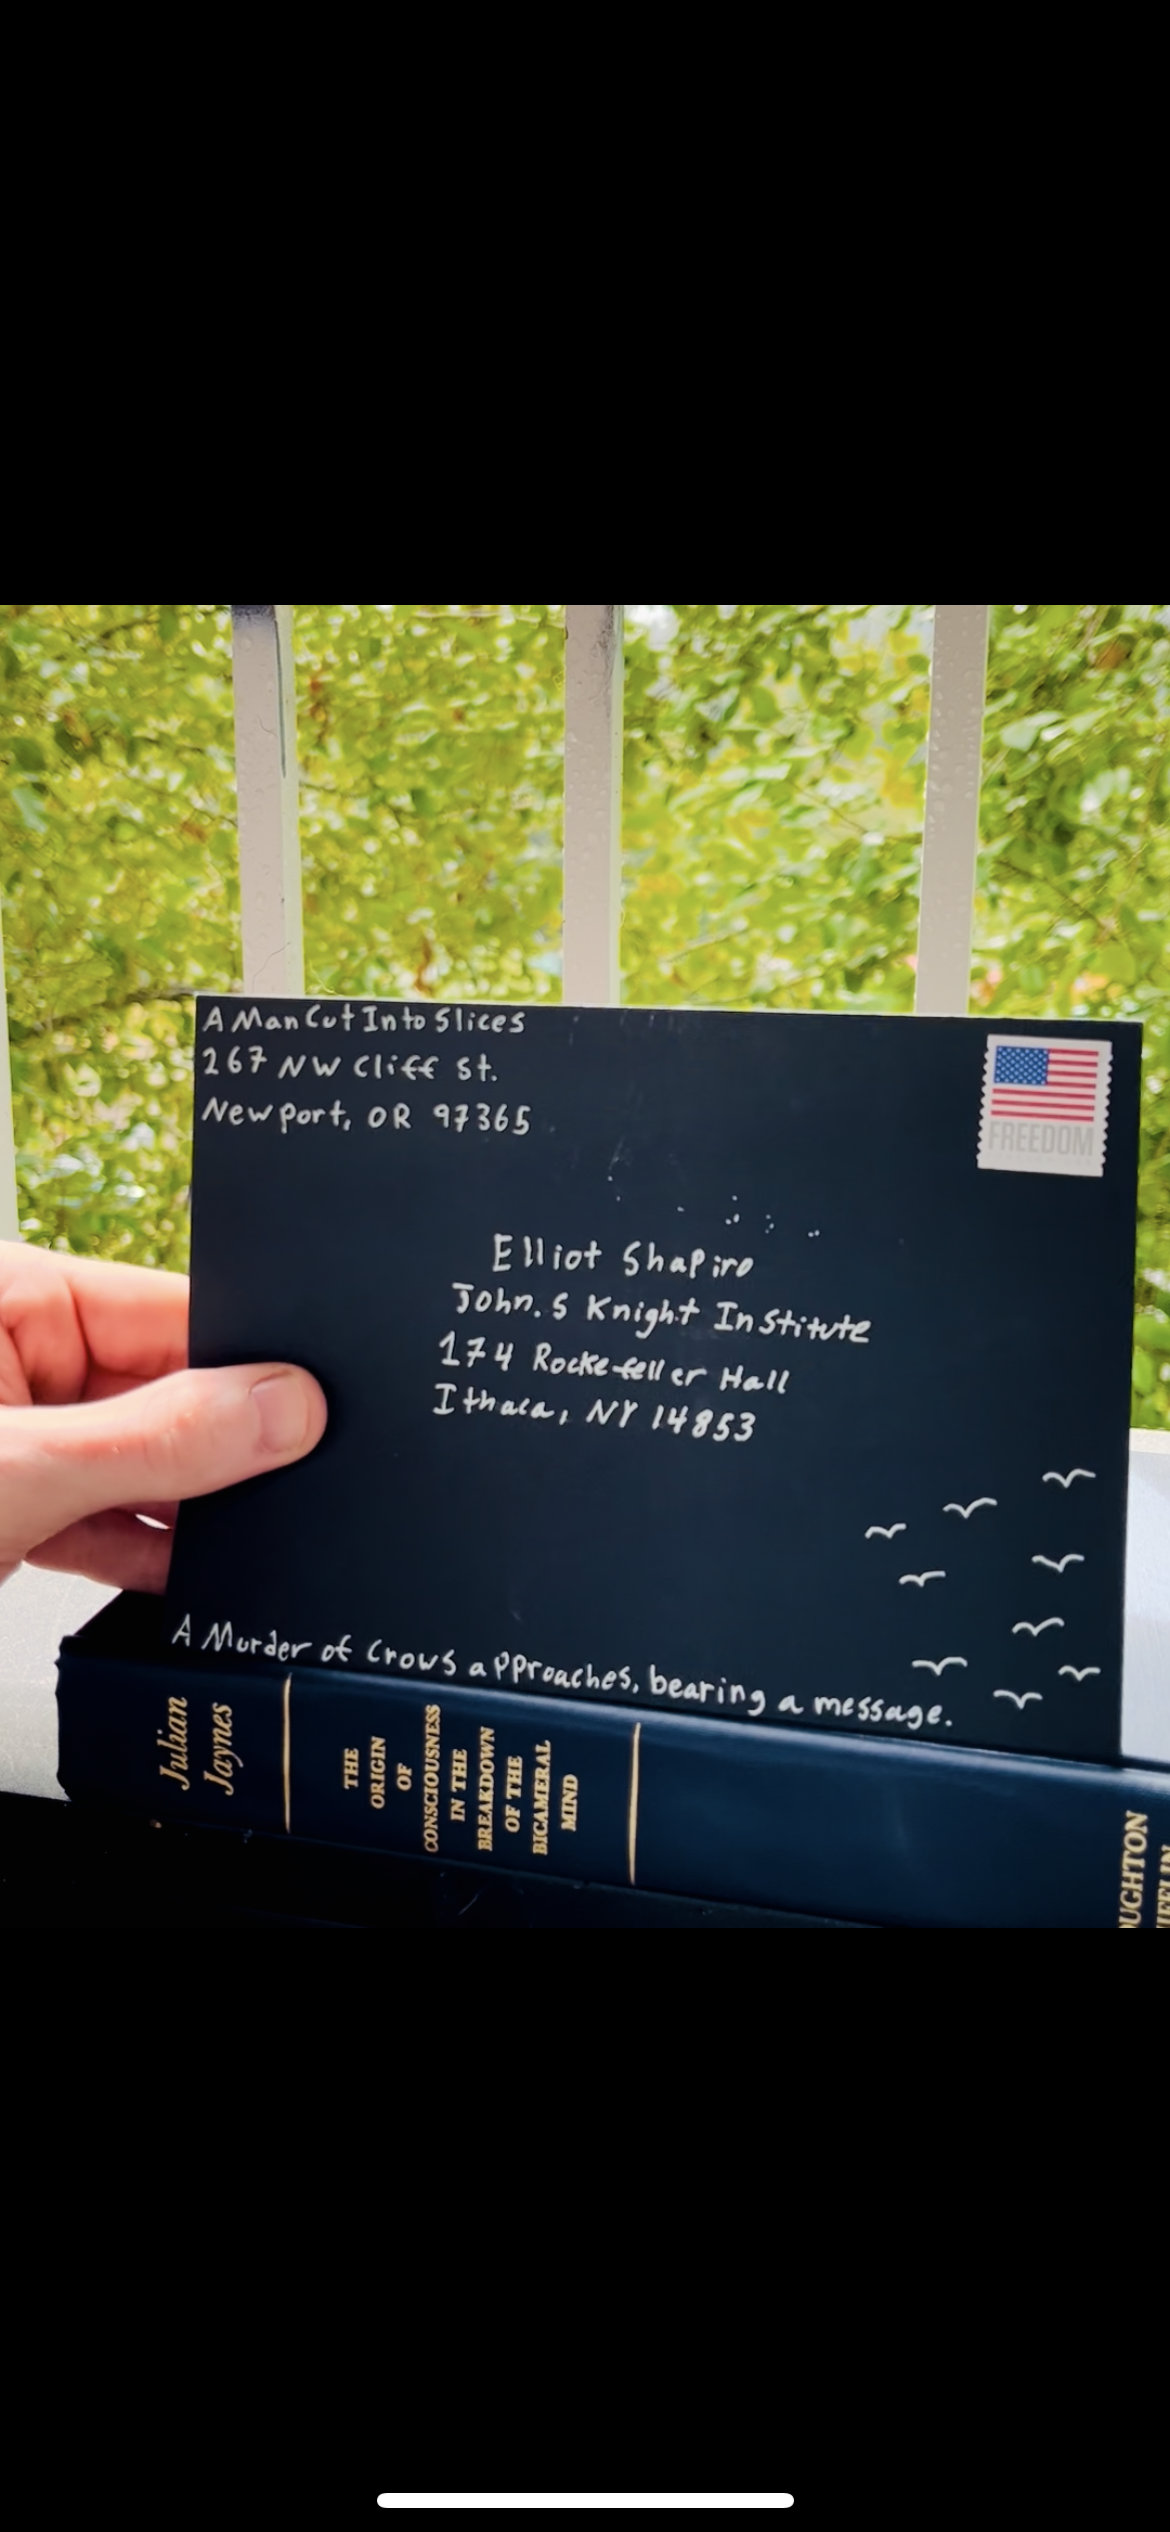 A Man Cut Into Slices
267 NW Cliff St.
Newport, OR 97365
FREEDOM
Elliot Shapiro
John. S Knight Institute
174 Rockefeller Hall
Ithaca, NY 14853
A Murder of Crows approaches, bearing a message.
Julian
Jaynes
THE
ORIGIN
OF
CONSCIOUSNESS
IN THE
BREAKDOWN
OF THE
BICAMERAL
MIND
OUGHTON